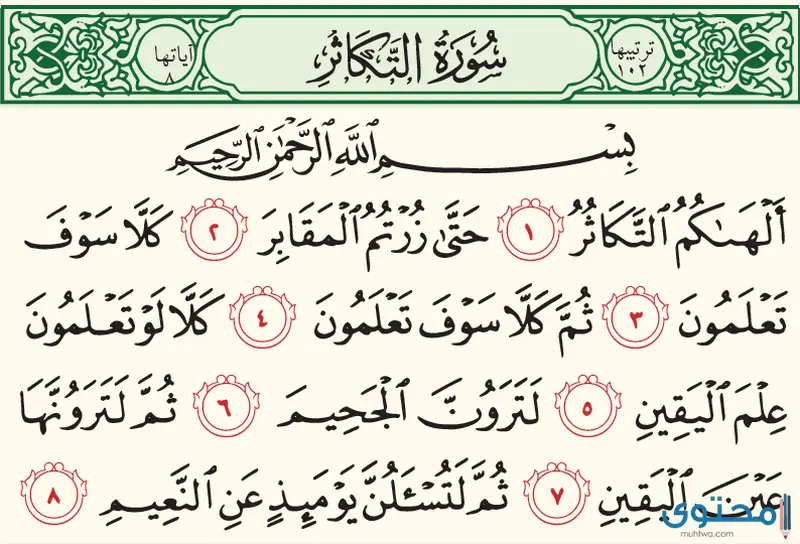 ترتيبها ١٠٢ سُورَةُ التَّكَاثُرِ آياتها ٨
بِسْمِ ٱللَّهِ ٱلرَّحْمَٰنِ ٱلرَّحِيمِ
أَلْهَىٰكُمُ ٱلتَّكَاثُرُ ١ حَتَّىٰ زُرْتُمُ ٱلْمَقَابِرَ ٢ كَلَّا سَوْفَ
تَعْلَمُونَ ٣ ثُمَّ كَلَّا سَوْفَ تَعْلَمُونَ ٤ كَلَّا لَوْ تَعْلَمُونَ
عِلْمَ ٱلْيَقِينِ ٥ لَتَرَوُنَّ ٱلْجَحِيمَ ٦ ثُمَّ لَتَرَوُنَّهَا
عَيْنَ ٱلْيَقِينِ ٧ ثُمَّ لَتُسْـَٔلُنَّ يَوْمَئِذٍ عَنِ ٱلنَّعِيمِ ٨
محتوى
muhtwa.com